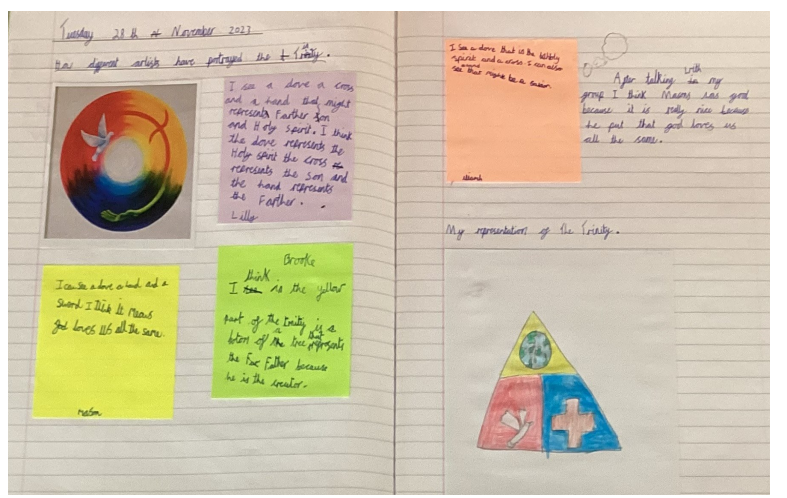 Tuesday 28th November 2023
How different artists have portrayed the Trinity.
I see a dove a cross
and a hand that might
represents Farther Son
and Holy Spirit. I think
the dove represents the
Holy spirit the cross
represents the Son and
the hand represents
the Farther.
Lilly
I can see a dove a hand and a
sword I think it means
god loves us all the same.
mason
Brooke
I think is the yellow
part of the trinity is a
botom of a tree that represents
the Father because
he is the creator.
I see a dove that is the holy
spirit and a cross. I can also
see that might be a
After talking with my
group I think Masons was good
because it is really nice because
he put that god loves us
all the same.
My representation of the Trinity.